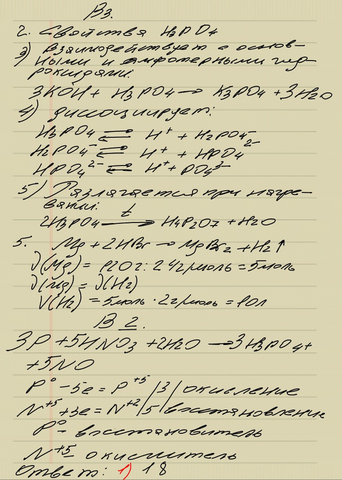 В3.
2. Свойства H₃PO₄
3) Взаимодействует с основ-
ными и амфотерными гид-
роксидами.
3KOH + H₃PO₄ → K₃PO₄ + 3H₂O
4) диссоциирует:
H₃PO₄ ⇄ H⁺ + H₂PO₄⁻
H₂PO₄⁻ ⇄ H⁺ + HPO₄²⁻
HPO₄²⁻ ⇄ H⁺ + PO₄³⁻
5) Разлагается при нагре-
вании:
2H₃PO₄ →t H₄P₂O₇ + H₂O
5. Mg + 2HBr → MgBr₂ + H₂↑
ν(Mg) = 120г : 24г/моль = 5моль
ν(Mg) = ν(H₂)
V(H₂) = 5моль · 2г/моль = 10л
В 2.
3P + 5HNO₃ + 2H₂O → 3H₃PO₄ +
+ 5NO
P⁰ – 5e = P⁺⁵ |3| окисление
N⁺⁵ + 3e = N⁺² |5| восстановление
P⁰ – восстановитель
N⁺⁵ – окислитель
Ответ: 1) 18